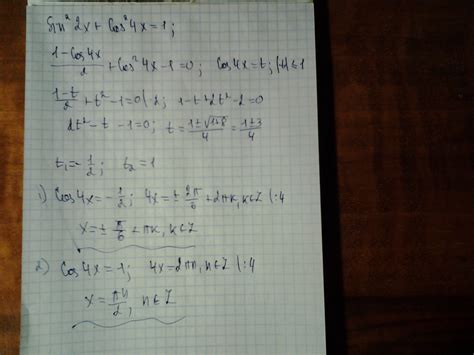 sin² 2x + cos² 4x = 1;
(1-cos4x)/2 + cos² 4x - 1 = 0; cos4x = t; |t| ≤ 1
(1-t)/2 + t² - 1 = 0 |·2; 1-t+2t²-2=0
2t² - t - 1 = 0; t = (1±√1+8)/4 = (1±3)/4
t₁ = -1/2; t₂ = 1
1) cos4x = -1/2; 4x = ± 2π/3 + 2πk, k∈Z |:4
x = ± π/6 + πk, k∈Z
2) cos4x = 1; 4x = 2πn, n∈Z |:4
x = πn/2, n∈Z